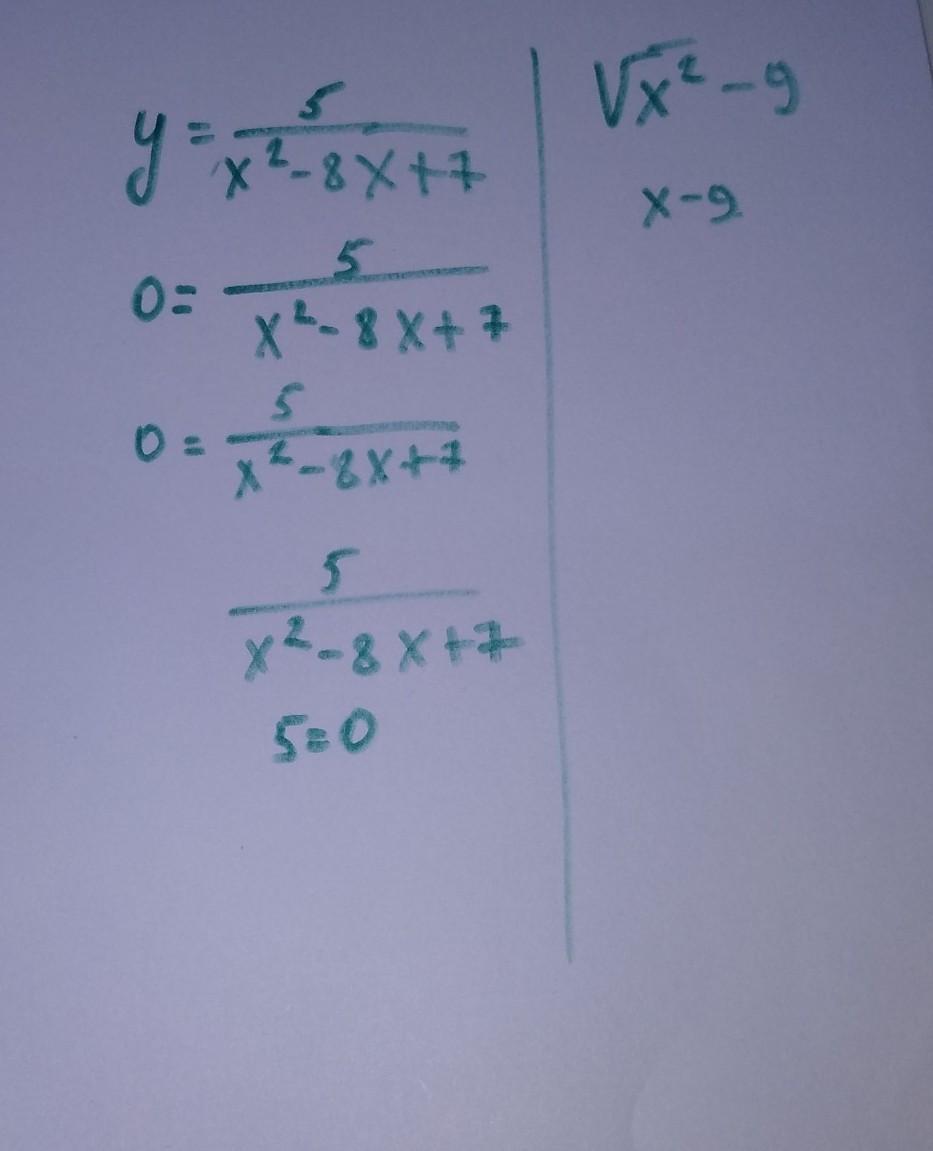 y = 5/(x² - 8x + 7)
0 = 5/(x² - 8x + 7)
0 = 5/(x² - 8x + 7)
5/(x² - 8x + 7)
5 = 0
√x² - 9
x - 9